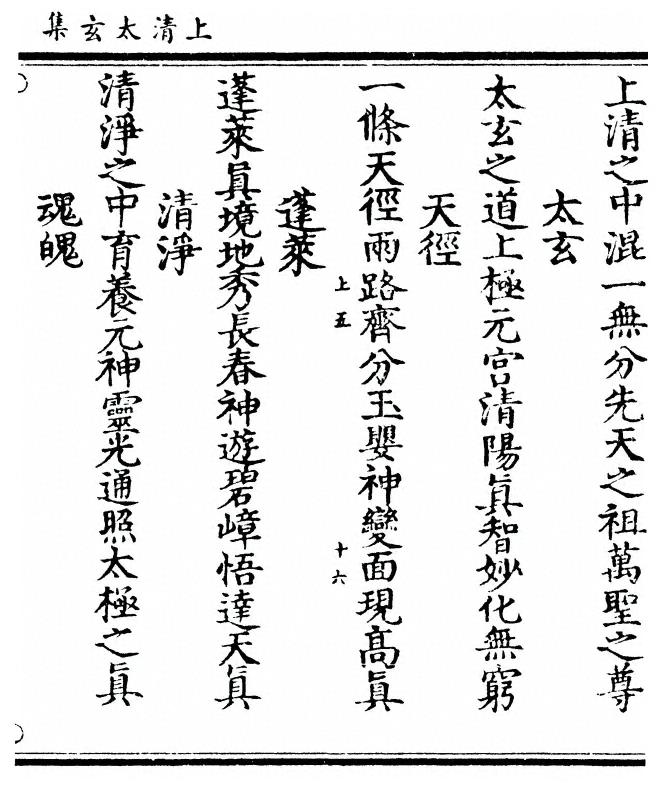 上清太玄集
上清之中混一無分先天之祖萬聖之尊
太玄
太玄之道上極元宮清陽眞智妙化無窮
天徑
一條天徑兩路齊分玉嬰神變面現高眞
上五
十六
蓬萊
蓬萊眞境地秀長春神遊碧嶂悟達天眞
清淨
清淨之中育養元神靈光通照太極之眞
魂魄